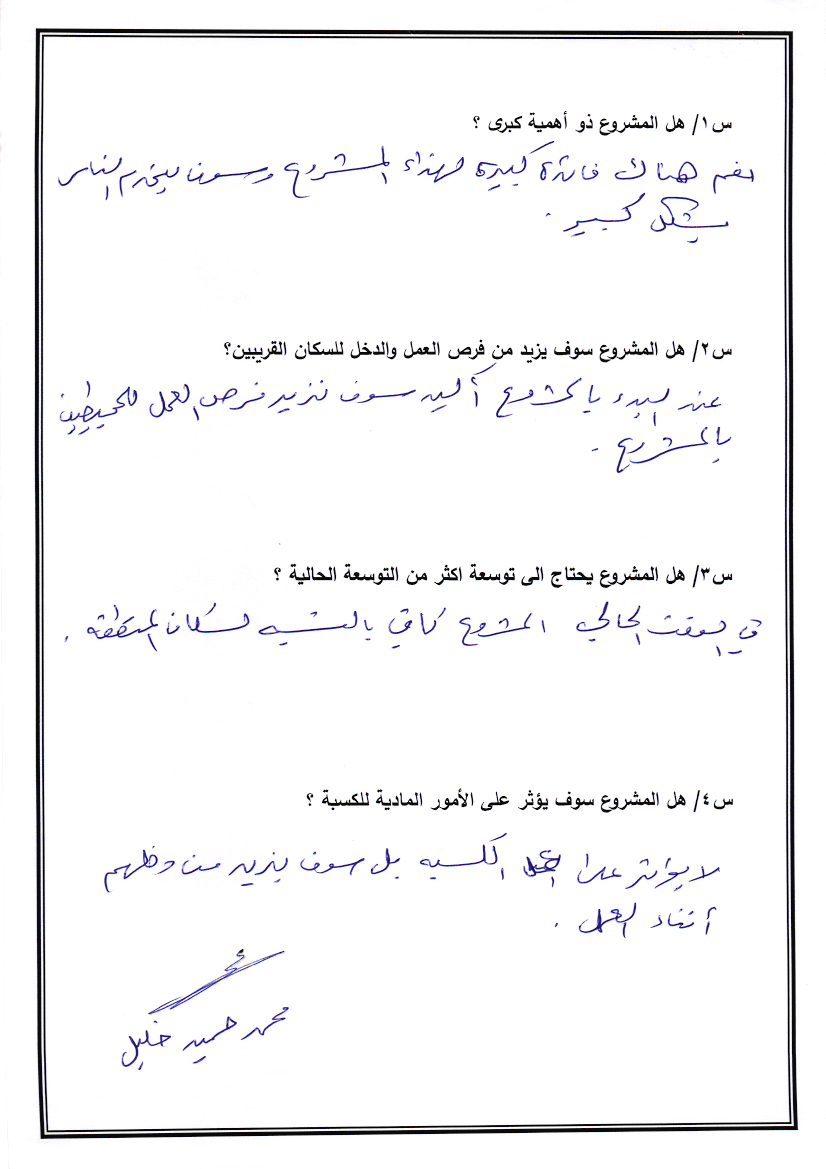 س١/ هل المشروع ذو أهمية كبرى ؟
نعم هناك فائدة كبيرة لهذا المشروع وسوف يخدم الناس
بشكل كبير .
س٢/ هل المشروع سوف يزيد من فرص العمل والدخل للسكان القريبين؟
عند البدء بالمشروع أكيد سوف تزيد فرص العمل للمحيطين
بالمشروع .
س٣/ هل المشروع يحتاج الى توسعة اكثر من التوسعة الحالية ؟
في الوقت الحالي المشروع كافي بالنسبه لسكان المنطقه .
س٤/ هل المشروع سوف يؤثر على الأمور المادية للكسبة ؟
لا يؤثر على الكسبه بل سوف يزيد من دخلهم
أثناء العمل .
محمد حميد خليل